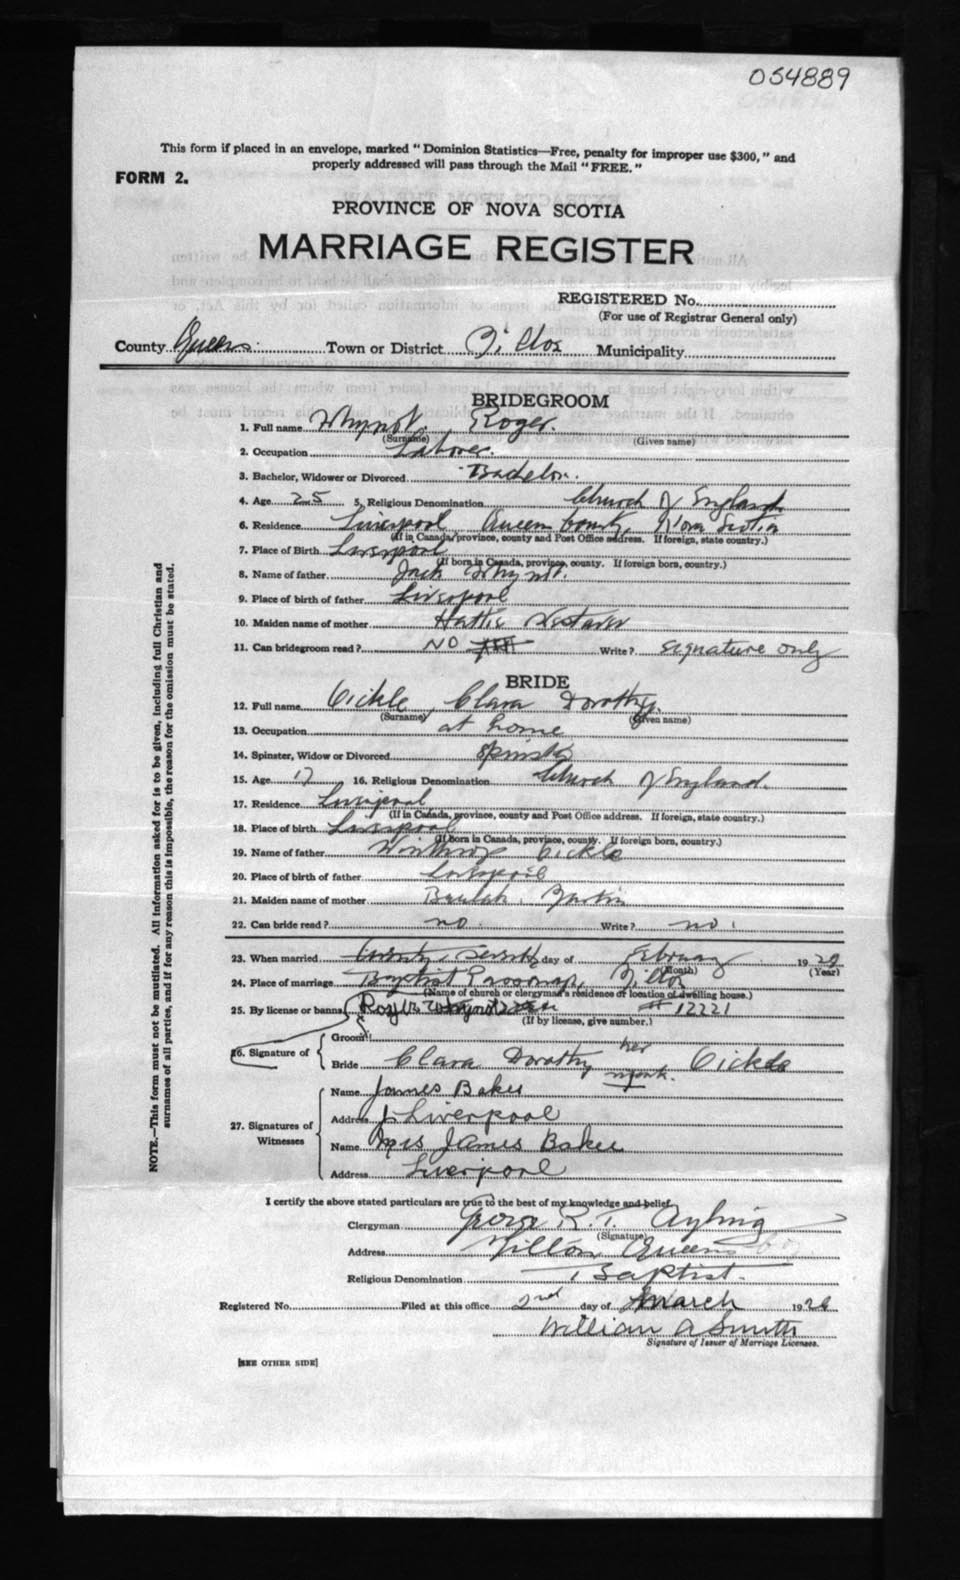 054889
This form if placed in an envelope, marked "Dominion Statistics—Free, penalty for improper use $300," and
properly addressed will pass through the Mail "FREE."
FORM 2.
PROVINCE OF NOVA SCOTIA
MARRIAGE REGISTER
REGISTERED No.
(For use of Registrar General only)
County Queens Town or District Milton Municipality
BRIDEGROOM
1. Full name Whynot Roger
(Surname) (Given name)
2. Occupation Laborer.
3. Bachelor, Widower or Divorced Bachelor.
4. Age 25 5. Religious Denomination Church of England
6. Residence Liverpool Queens County, Nova Scotia
(If in Canada, province, county and Post Office address. If foreign, state country.)
7. Place of Birth Liverpool
(If born in Canada, province, county. If foreign born, country.)
8. Name of father Jack Whynot.
9. Place of birth of father Liverpool
10. Maiden name of mother Hattie
11. Can bridegroom read? NO Write? signature only
BRIDE
12. Full name Oickle, Clara Dorothy.
(Surname) (Given name)
13. Occupation at home
14. Spinster, Widow or Divorced Spinster
15. Age 17 16. Religious Denomination Church of England.
17. Residence Liverpool
(If in Canada, province, county and Post Office address. If foreign, state country.)
18. Place of birth Liverpool
(If born in Canada, province, county. If foreign born, country.)
19. Name of father Winthrop Oickle
20. Place of birth of father Liverpool
21. Maiden name of mother Beulah
22. Can bride read? no. Write? no.
23. When married twenty seventh day of February 1929
(Month) (Year)
24. Place of marriage Baptist Parsonage, Milton
(Name of church or clergyman's residence or location of dwelling house.)
25. By license or banns # 12221
(If by license, give number.)
26. Signature of
Groom
Bride Clara Dorothy her mark. Oickle
27. Signatures of Witnesses
Name James Baker
Address Liverpool
Name Mrs James Baker
Address Liverpool
I certify the above stated particulars are true to the best of my knowledge and belief.
Clergyman R. T. Ayling
(Signature)
Address Milton Queens Co.
Religious Denomination Baptist.
Registered No. Filed at this office 2nd day of March 1929
William A Smith
Signature of Issuer of Marriage Licenses.
[SEE OTHER SIDE]
NOTE.—This form must not be mutilated. All information asked for is to be given, including full Christian and
surnames of all parties, and if for any reason this is impossible, the reason for the omission must be stated.